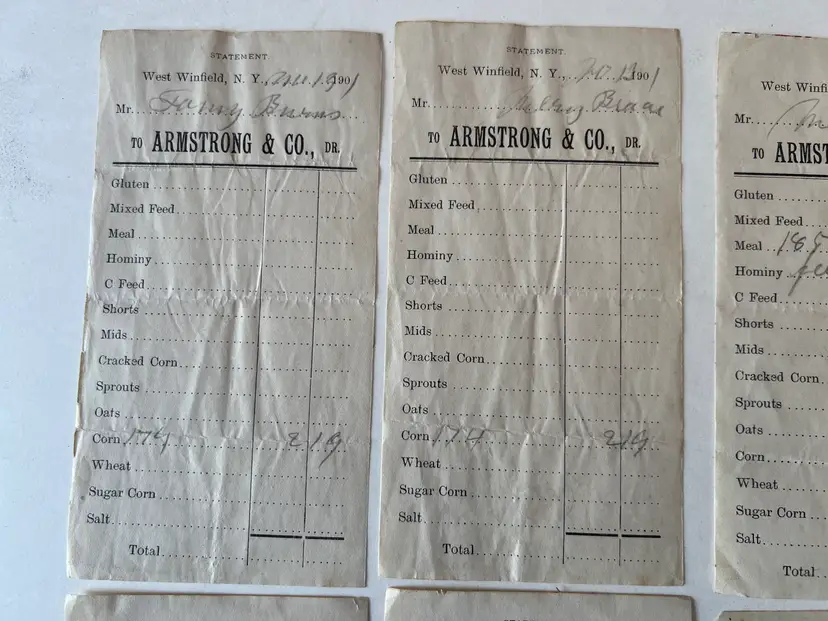 STATEMENT
West Winfield, N. Y. 19 1901
Mr. Burns
TO ARMSTRONG & CO., DR.
Gluten
Mixed Feed
Meal
Hominy
C Feed
Shorts
Mids
Cracked Corn
Sprouts
Oats
Corn 174 2 19
Wheat
Sugar Corn
Salt
Total
STATEMENT.
West Winfield, N. Y., 13 1901
Mr.
TO ARMSTRONG & CO., DR.
Gluten
Mixed Feed
Meal
Hominy
C Feed
Shorts
Mids
Cracked Corn
Sprouts
Oats
Corn 174 219
Wheat
Sugar Corn
Salt
Total
West Winfi
Mr.
TO ARMST
Gluten
Mixed Feed
Meal
Hominy
C Feed
Shorts
Mids
Cracked Corn
Sprouts
Oats
Corn
Wheat
Sugar Corn
Salt
Total